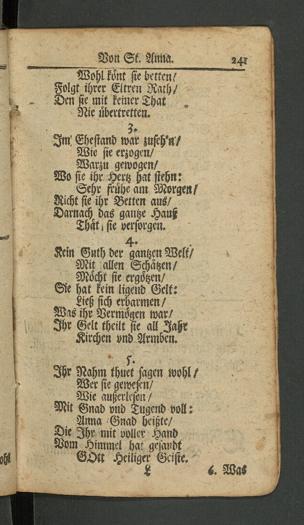 Von St. Anna. 241
Wohl könt sie betten/
Folgt ihrer Eltren Rath/
Den sie mit keiner That
Nie übertretten.
3.
Im Ehestand war zuseh'n/
Wie sie erzogen/
Warzu gewogen/
Wo sie ihr Hertz hat stehn:
Sehr frühe am Morgen/
Richt sie ihr Betten aus/
Darnach das gantze Hauß
Thät sie versorgen.
4.
Kein Guth der gantzen Welt/
Mit allen Schätzen/
Möcht sie ergötzen/
Sie hat kein ligend Gelt:
Ließ sich erbarmen/
Was ihr Vermögen war/
Ihr Gelt theilt sie all Jahr
Kirchen und Armben.
5.
Ihr Nahm thuet sagen wohl/
Wer sie gewesen/
Wie außerlesen/
Mit Gnad vnd Tugend voll:
Anna Gnad heißte/
Die Ihr mit voller Hand
Vom Himmel hat gesandt
GOtt Heiliger Geiste.
L 6. Was